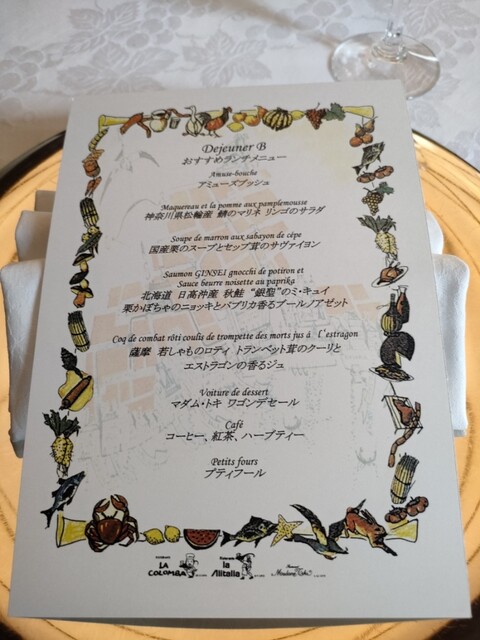 Dejeuner B
おすすめランチメニュー
Amuse-bouche
アミューズブッシュ
Maquereau et la pomme aux pamplemousse
神奈川県松輪産 鯖のマリネ リンゴのサラダ
Soupe de marron aux sabayon de cèpe
国産栗のスープとセップ茸のサヴァイヨン
Saumon GINSEI gnocchi de potiron et
Sauce beurre noisette au paprika
北海道 日高沖産 秋鮭 “銀聖”のミ・キュイ
栗かぼちゃのニョッキとパプリカ香るブールノアゼット
Coq de combat rôti coulis de trompette des morts jus à l'estragon
薩摩 若しゃものロティ トランペット茸のクーリと
エストラゴンの香るジュ
Voiture de dessert
マダム・トキ ワゴンデセール
Café
コーヒー、紅茶、ハーブティー
Petits fours
プティフール
LA COLOMBA
la Alitalia
Madame Toki